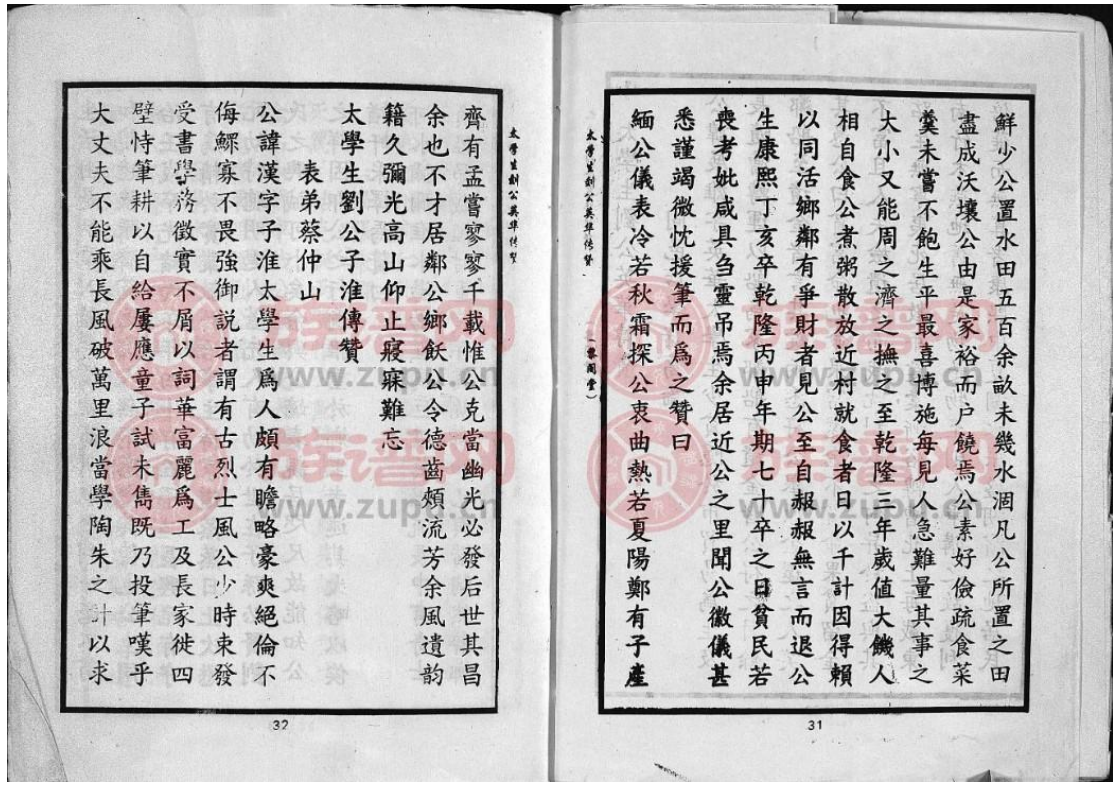 鮮少公置水田五百余畝未幾水涸凡公所置之田
盡成沃壤公由是家裕而户饒焉公素好儉疏食菜
羹未嘗不飽生平最喜博施每見人急難量其事之
大小又能周之濟之撫之至乾隆三年歲值大饑人
相自食公煮粥散放近村就食者日以千計因得賴
以同活鄉鄰有爭財者見公至自赧赧無言而退公
生康熙丁亥卒乾隆丙申年期七十卒之日貧民若
喪考妣咸具芻靈吊焉余居近公之里聞公徽儀甚
悉謹竭微忱援筆而爲之贊曰
緬公儀表冷若秋霜探公衷曲熱若夏陽鄭有子產
太學生劉公英华传赞
(黎閣堂)
31
太學生劉公英华传赞
齊有孟嘗寥寥千載惟公克當幽光必發后世其昌
余也不才居鄰公鄉飫公令德齒頰流芳余風遺韵
籍久彌光高山仰止寢寐難忘
太學生劉公子淮傳贊
表弟蔡仲山
公諱漢字子淮太學生爲人頗有瞻略豪爽絕倫不
侮鰥寡不畏強御説者謂有古烈士風公少時束發
受書學務徵實不屑以詞華富麗爲工及長家徙四
壁恃筆耕以自給屢應童子試未雋既乃投筆嘆乎
大丈夫不能乘長風破萬里浪當學陶朱之計以求
32
族谱网
www.zupu.cn
族谱网
www.zupu.cn
族谱网
www.zupu.cn
族谱网
www.zupu.cn